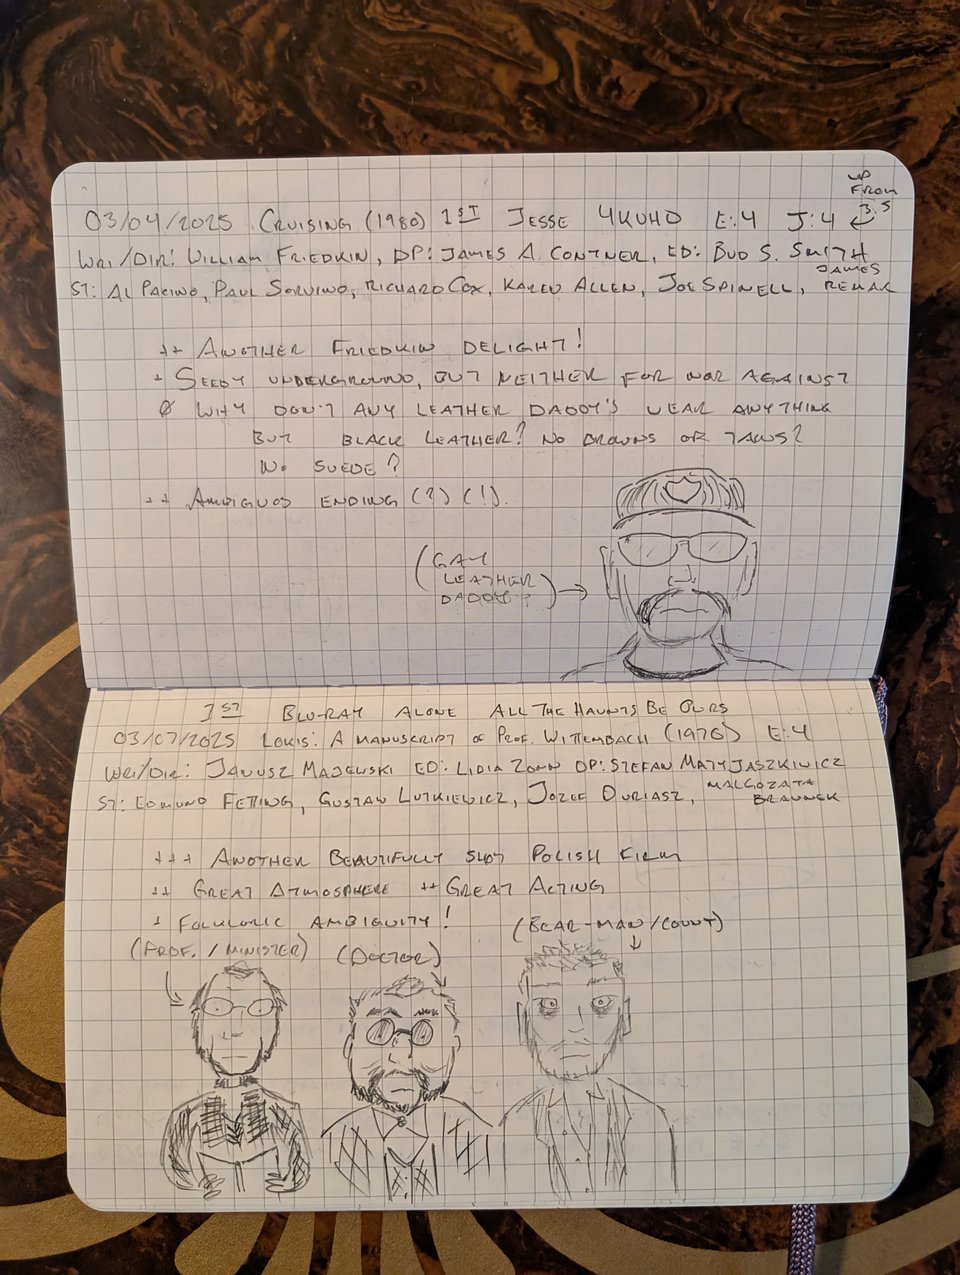 UP
FROM
3.5
03/04/2025 CRUISING (1980) 1ST JESSE 4KUHD E:4 J:4
WRI/DIR: WILLIAM FRIEDKIN, DP: JAMES A. CONTNER, ED: BUD S. SMITH
ST: AL PACINO, PAUL SORVINO, RICHARD COX, KAREN ALLEN, JOE SPINELL, JAMES REMAR
++ ANOTHER FRIEDKIN DELIGHT!
+ SEEDY UNDERGROUND, BUT NEITHER FOR NOR AGAINST
Ø WHY DON'T ANY LEATHER DADDY'S WEAR ANYTHING
BUT BLACK LEATHER? NO BROWNS OR TANS?
NO SUEDE?
++ AMBIGUOS ENDING (?) (!).
(GAY
LEATHER
DADDY?)
1ST BLU-RAY ALONE ALL THE HAUNTS BE OURS
03/07/2025 LOKIS: A MANUSCRIPT OF PROF. WITTEMBACH (1970) E:4
WRI/DIR: JANUSZ MAJEWSKI ED: LIDIA ZONN DP: STEFAN MATYJASZKIWICZ
ST: EDMUND FETTING, GUSTAW LUTKIEWICZ, JOZEF DURIASZ, MALGOZATA BRAUNEK
+++ ANOTHER BEAUTIFULLY SHOT POLISH FILM
++ GREAT ATMOSPHERE ++ GREAT ACTING
+ FOLKLORIC AMBIGUITY!
(PROF. / MINISTER) (DOCTOR) (BEAR-MAN/COUNT)